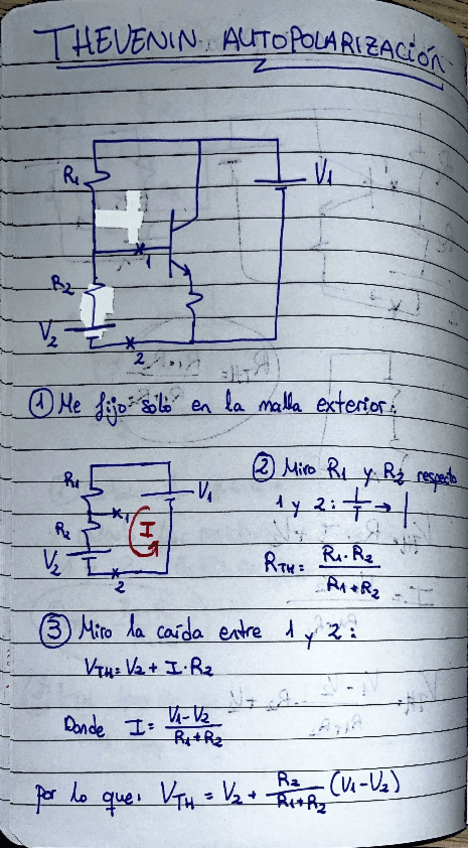 THEVENIN AUTOPOLARIZACIÓN
R1
V1
1
R2
V2
2
① Me fijo solo en la malla exterior:
R1
1
V1
R2
I
V2
2
② Miro R1 y R2 respecto
1 y 2: → |
RTH = R1·R2 / R1+R2
③ Miro la caída entre 1 y 2:
VTH = V2 + I·R2
Donde I = V1-V2 / R1+R2
por lo que: VTH = V2 + R2 / R1+R2 (V1-V2)